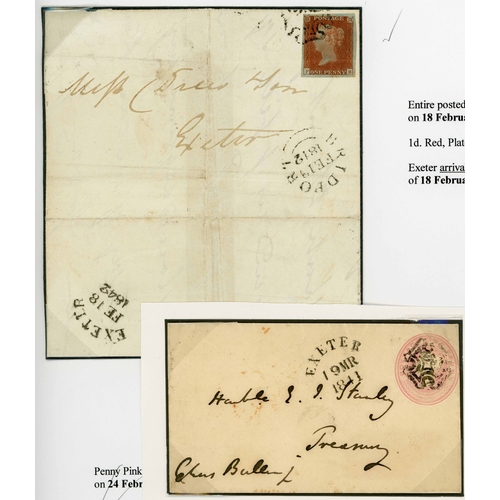 POSTAGE
ONE PENNY
Messrs Trew & Son
Exeter
BIDEFORD
FE 17
1842
EXETER
FE 18
1842
Entire posted
on 18 Februa
1d. Red, Plat
Exeter arriva
of 18 Februa
EXETER
19 MR
1841
Honble E. J. Stanley
Treasury
Chas Buller
Penny Pink
on 24 Febru